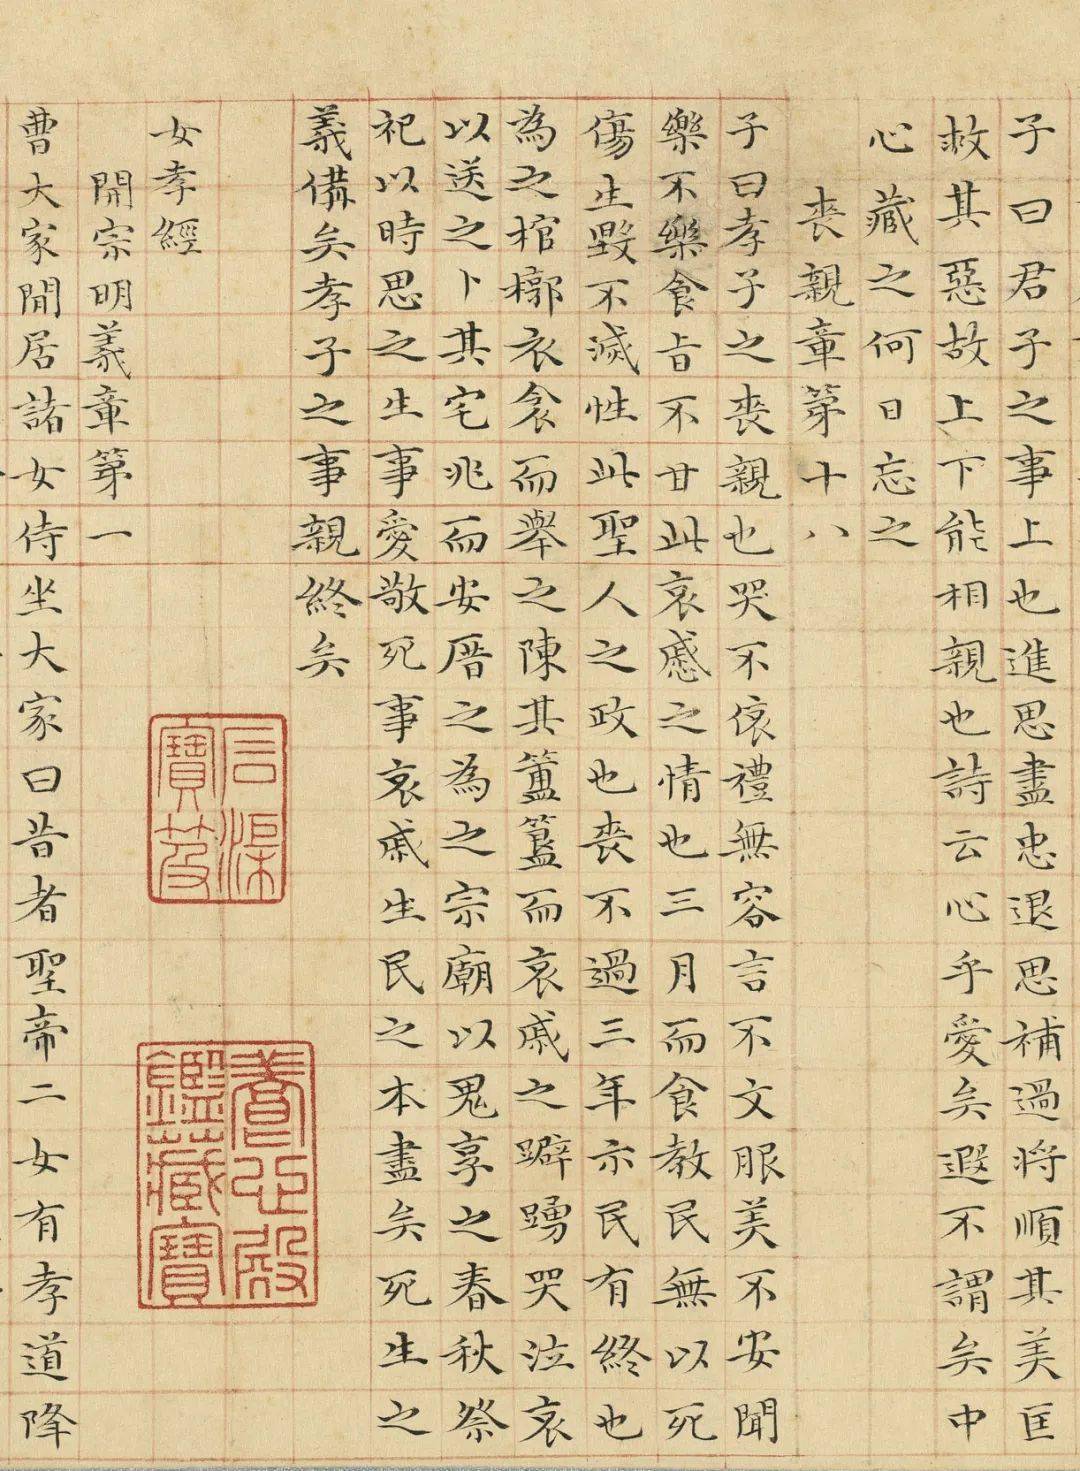 子曰君子之事上也進思盡忠退思補過將順其美匡
救其惡故上下能相親也詩云心乎愛矣遐不謂矣中
心藏之何日忘之
喪親章第十八
子曰孝子之喪親也哭不偯禮無容言不文服美不安聞
樂不樂食旨不甘此哀慼之情也三月而食教民無以死
傷生毀不滅性此聖人之政也喪不過三年示民有終也
為之棺槨衣衾而舉之陳其簠簋而哀戚之躃踊哭泣哀
以送之卜其宅兆而安厝之為之宗廟以鬼享之春秋祭
祀以時思之生事愛敬死事哀戚生民之本盡矣死生之
義備矣孝子之事親終矣
石渠寶笈
養心殿鑑藏寶
女孝經
開宗明義章第一
曹大家閒居諸女侍坐大家曰昔者聖帝二女有孝道降